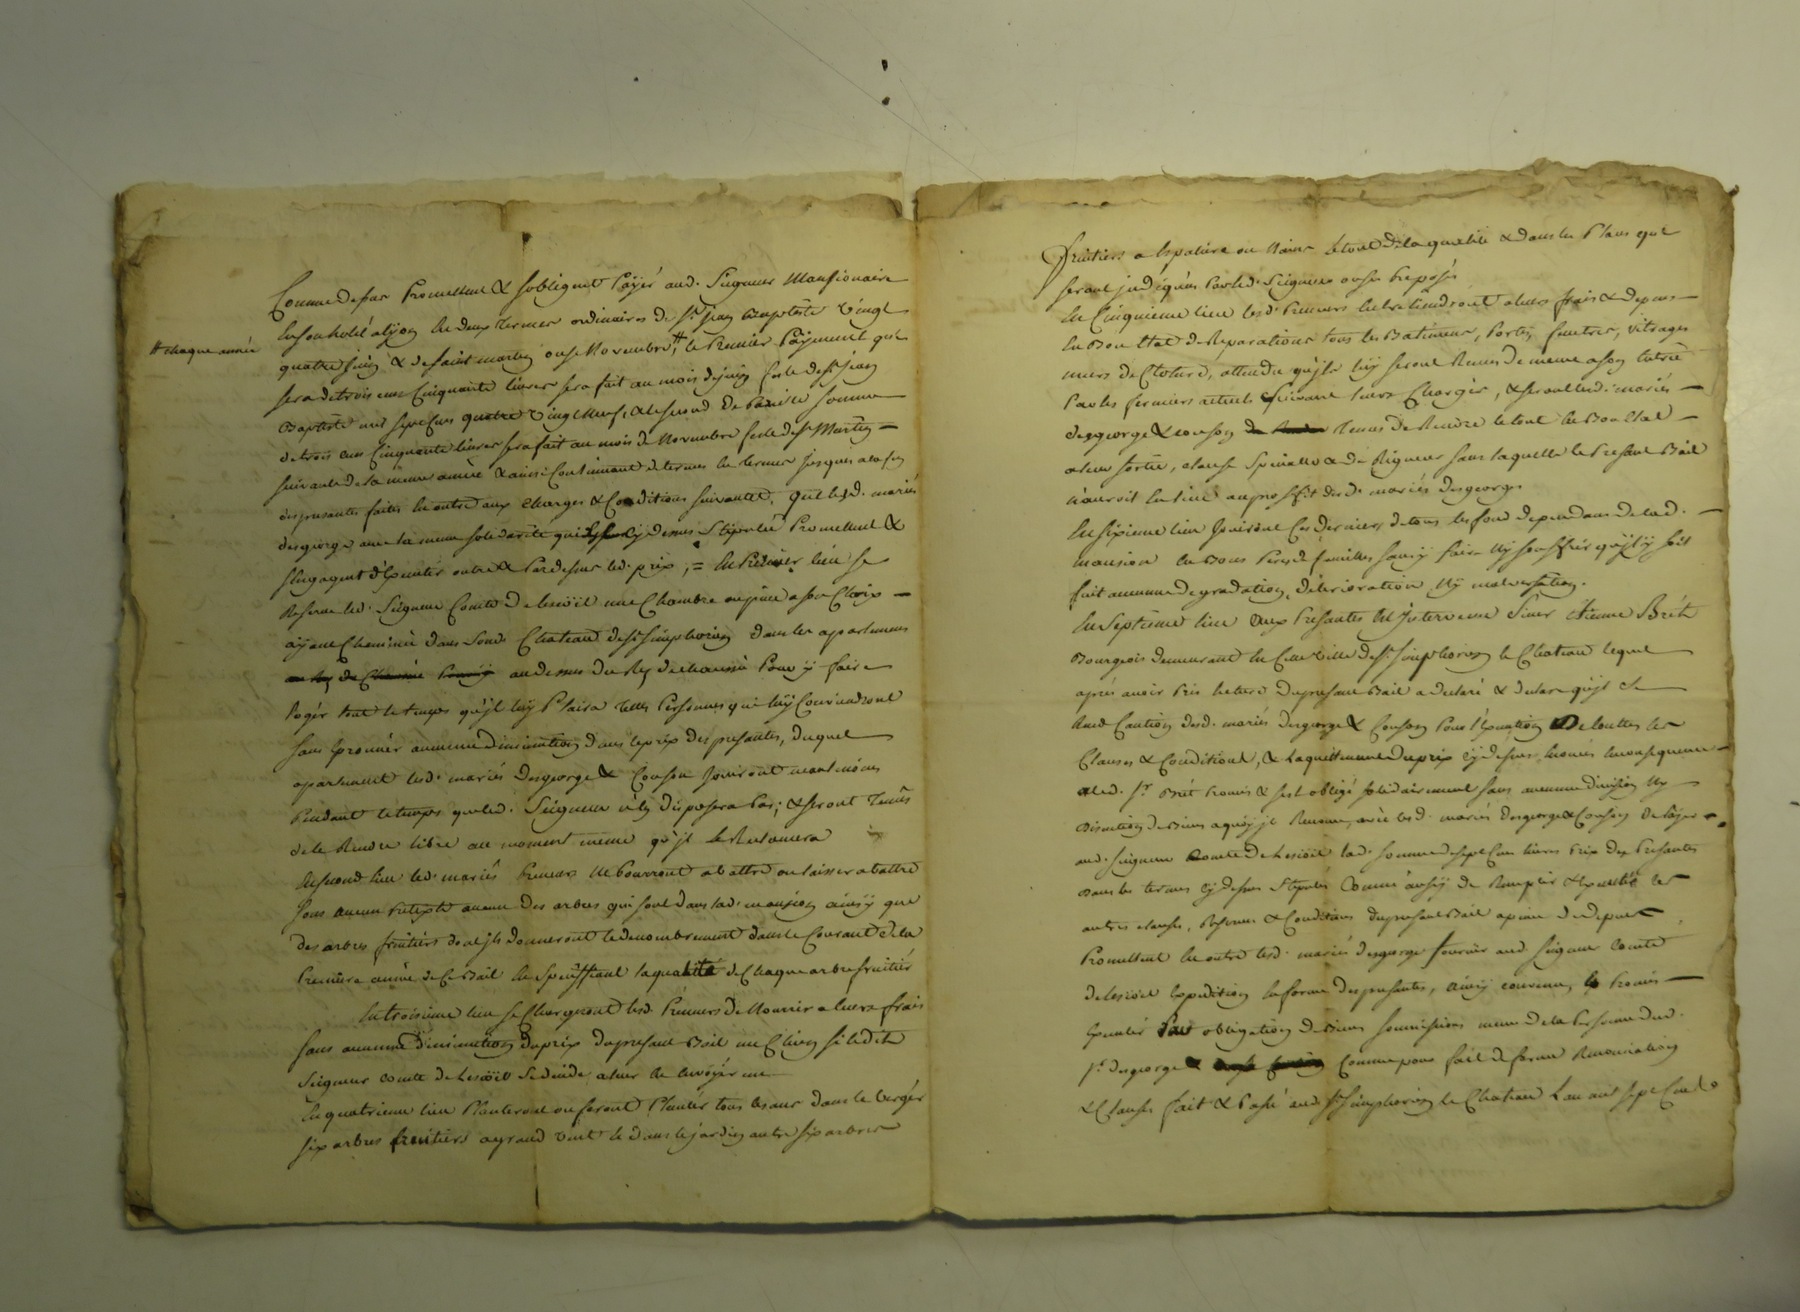 Comme de fait Promettent & sobligent Païjer aud. Seigneur Mansionaire
en son hotel a lÿon en deux termes ordinaires de St jean Baptiste vingt
# chaque année
quatre juin & de saint martin onze Novembre # le Premier Païment qui
sera de trois cens Cinquante livres sera fait au mois de juin feste de St jean
Baptiste mil sept cens quatre vingt neuf, & le second de Pareille somme
de trois cens Cinquante livres sera fait au mois de Novembre feste de St Martin
suivante de la même année & ainsi Continuant de termes en termes jusques a la fin
des presantes faites en outre aux charges & Conditions suivantes, que lesd. mariés
desgeorge avec la meme solidarité qui cy dessus Stipulée Promettent &
sEngagent d'Executer outre & Par dessus led. prix, = En Premier lieu se
Reserve led. Seigneur Comte de une Chambre ou piece a son Choix
aÿant Cheminée dans sond. Chateau de St Simphorien dans les apartemens
au dessus du Rez de chaussée Pour y faire
loger tout le temps qu'jl luy Plaira telles Personnes qui luy Conviendront
sans Eprouver aucune Diminution dans le prix des presantes, duquel
apartement lesd. mariés Desgeorge & Couson jouiront neantmoins
Pendant le temps que led. Seigneur n'En disposera Pas; & seront Tenus
de le Rendre libre au moment même qu'jl le Reclamera
En second lieu led. mariés Preneurs ne Pourront abattre ou laisser abattre
sous aucun Pretexte aucun des arbres qui sont dans lad. maison ainsÿ que
des arbres fruitiers dont jls donneront le denombrement dans le Courant de la
Premiere année de Ce Bail En Speciffiant la qualité de Chaque arbre fruitier
En troisieme lieu se Chargeront lesd. Preneurs de Nourrir a leurs frais
sans aucune Diminution du prix du presant Bail un Chien si ledit
Seigneur comte de se decide a leur En Envoÿer un
En quatrieme lieu Planteront ou feront Planter tous les ans dans le verger
six arbres fruitiers a grand vent & dans le jardin autre six arbres
fruitiers a Espalière ou Nains le tout de la qualité & dans les Places qui
seront jndiquées Par led. Seigneur ou ses Preposés
En Cinquieme lieu lesd. Preneurs Entretiendront a leurs frais & depens
En Bon Etat de Reparations tous les Batimens, Portes, fenetres, vitrages
murs de Cloture, attendu qu'jls luy seront Remis de meme a son Entrée
Par les fermiers actuels Suivant leurs Charges, & seront lesd. mariés
desgeorge & Couson Tenus de Rendre le tout En Bon Etat
a leur sortie, clause Speciale & de Rigueur sans laquelle le Presant Bail
n'auroit Eu lieu au proffit desd. mariés Desgeorge
En sixieme lieu Jouiront Ces derniers de tous les fond dependans de lad.
maison En Bons Peres de familles sans y faire Ny souffrir qu'jl y soit
fait aucune degradation, deterioration Ny malversation.
En Septieme lieu Aux Presantes Est Jntervenu Sieur Etienne Brét
Bourgeois demeurant En Cette ville de St Simphorien le Chateau lequel
aprés avoir Pris lecture du presant Bail a declaré & declare qu'jl se
Rend Caution desd. mariés Desgeorge & Couson Pour l'Execution De touttes les
Clauses & Conditions, & l'aquittement du prix cy dessus Enoncés En consequence
led. Sr Brét Promis & s'est obligé solidairement sans aucune division Ny
discution de Biens a quoy jl Renonce, avec lesd. mariés desgeorge & Couson de Païer
aud. Seigneur Comte de lad. somme de sept Cens livres Prix des Presantes
dans les termes cy dessus Stipulés Comme aussy de Remplir & Executer les
autres clauses, Reserves & Conditions du presant Bail a peine de depens
Promettent En outre lesd. mariés desgeorge fournir aud. Seigneur Comte
de Expedition En forme des presantes, Ainsy convenu, & Promis
Executer Par obligation de Biens soumissions meme de la Personne dud.
Sr desgeorge Comme pour fait de ferme Renonciation
& Clauses fait & Passé aud. St Simphorien le Chateau L'an mil sept Cens